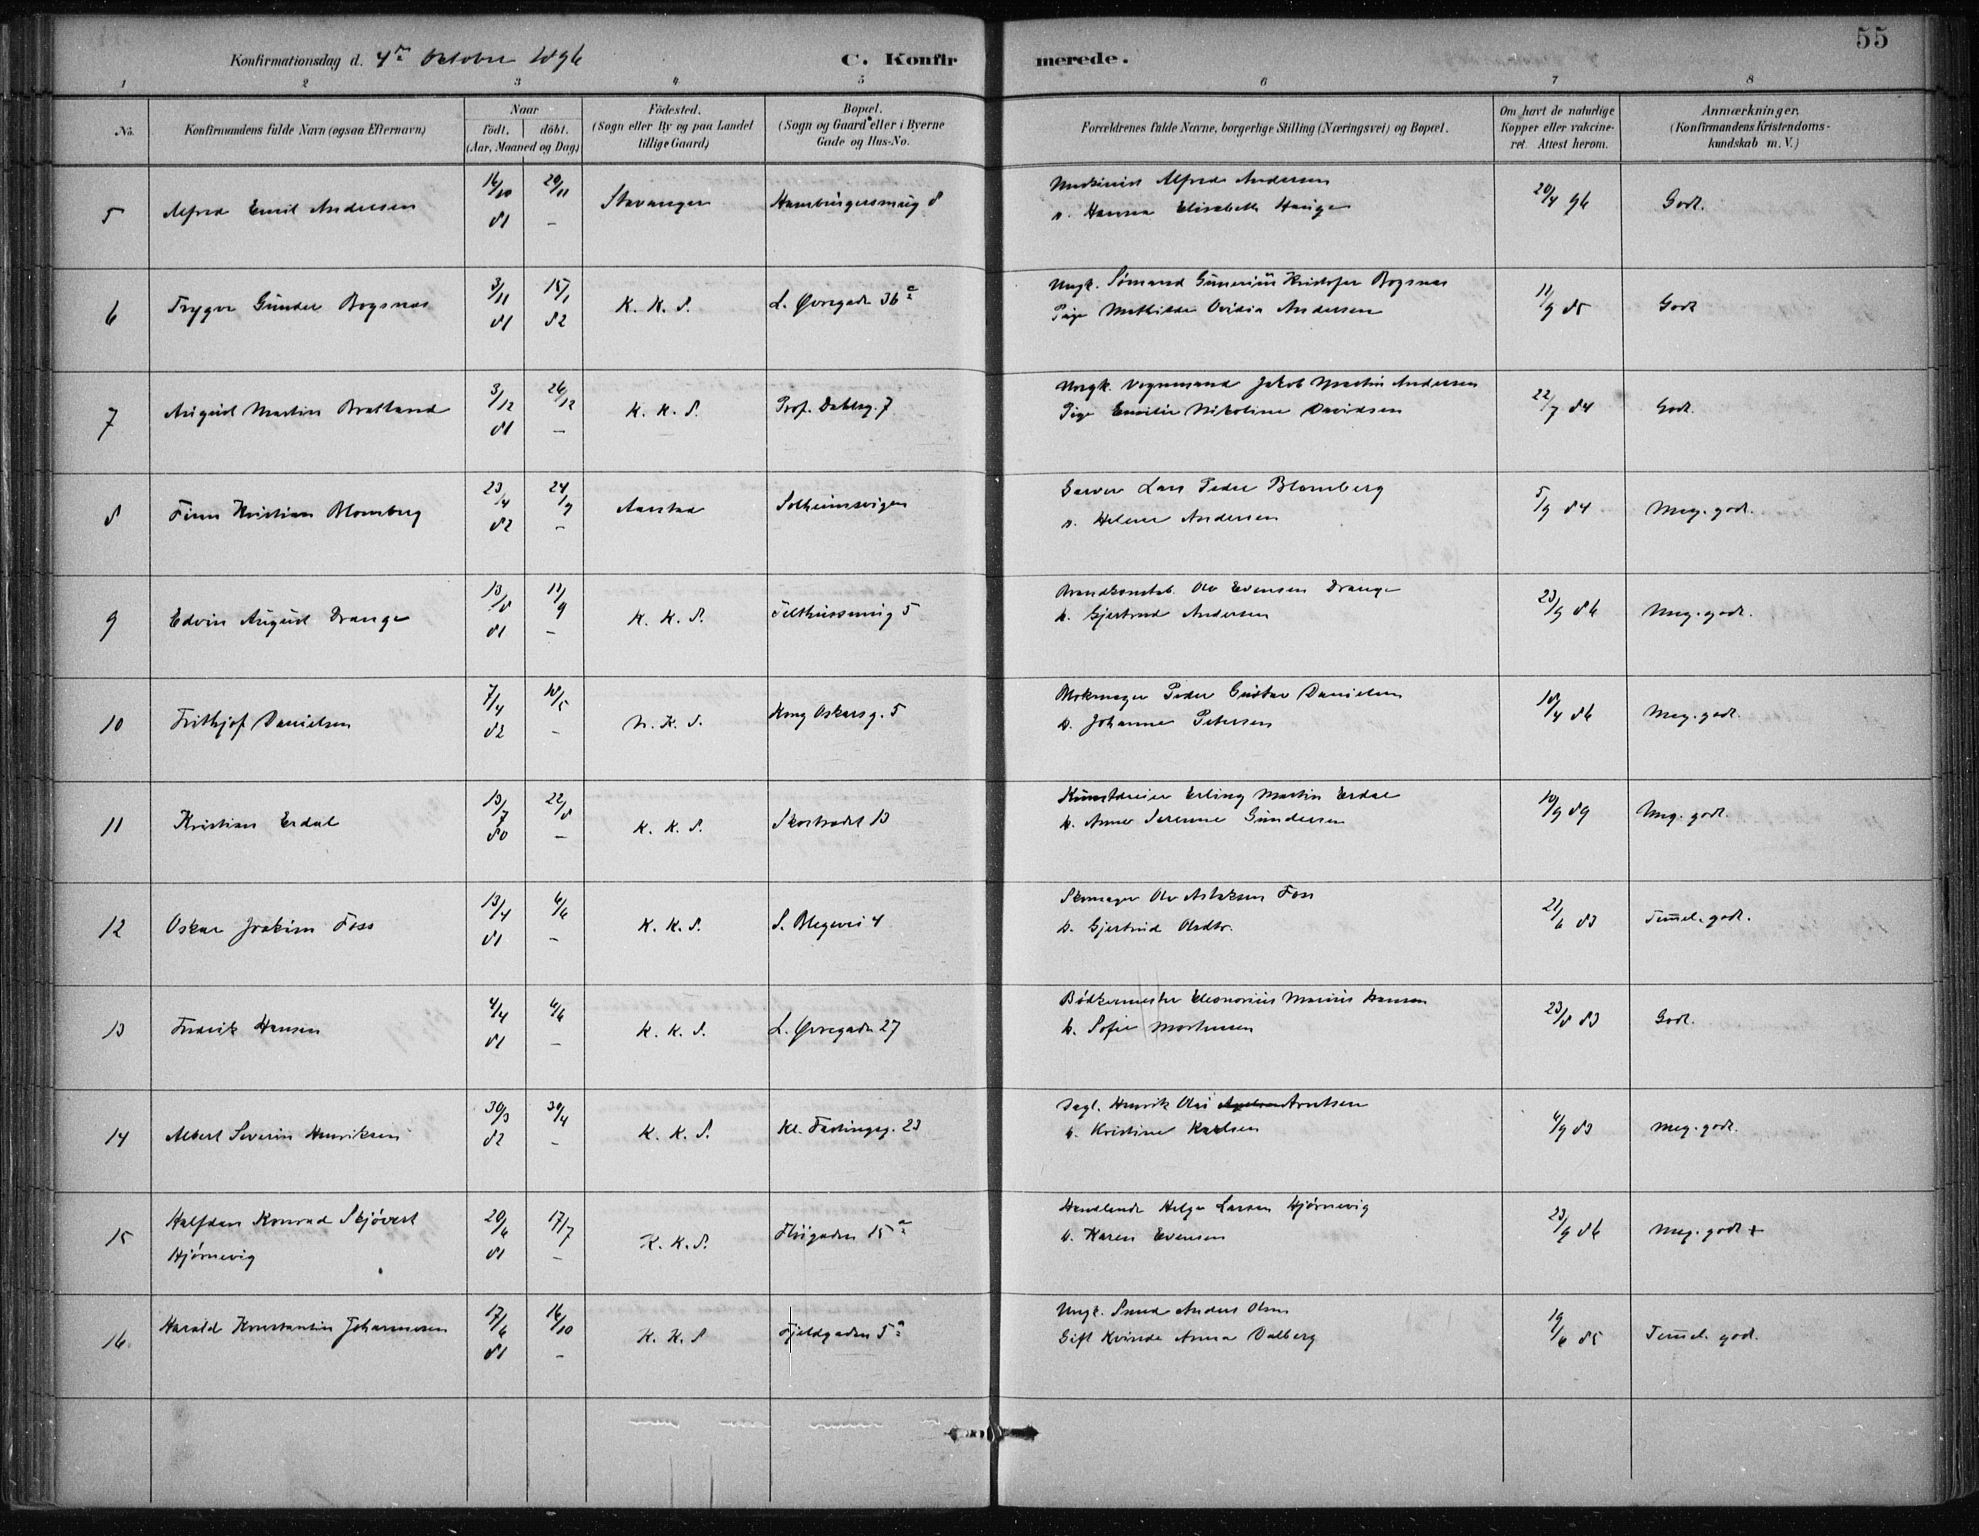 55
Konfirmationsdag d. 4de October 1896
C. Konfirmerede.
1 2 3 4 5 6 7 8
No. Konfirmandens fulde Navn (ogsaa Efternavn) Naar født. døbt. (Aar, Maaned og Dag) Fødested. (Sogn eller By og paa Landet tillige Gaard) Bopæl. (Sogn og Gaard eller i Byerne Gade og Hus-No. Forældrenes fulde Navne, borgerlige Stilling (Næringsvei) og Bopæl. Om havt de naturlige Kopper eller vakcineret. Attest herom. Anmærkninger, (Konfirmandens Kristendomskundskab m. V.)
5 Alfred Emil Andersen 16/10 81 20/11 – Stavanger Hamburgersmug 8 Maskinist Alfred Andersen
Hanna Elisabeth Hauge 20/4 96 Godt.
6 Trygve Gunder Bogsnæs 3/11 81 15/1 82 K. K. S. L. Øvregade 36a Ungk. Sømand Gunerius Kristofer Bogsnæs
Pige Mathilde Ovidia Andersen 11/9 85 Godt
7 August Martin Bratland 3/12 81 26/12 – K. K. S. Prof. Dahlsg. 7 Ungk. Vognmand Jakob Martin Andersen
Pige Emilie Nikoline Davidsen 22/7 84 Godt.
8 Finn Kristian Blomberg 23/4 82 24/9 – Aarstad Solheimsvigen Garver Lars Peder Blomberg
Helene Andersen 5/9 84 Meg. godt.
9 Edvin August Drange 13/8 81 11/9 – K. K. S. Telthussmug 5 Brandkonstab. Ole Evensen Drange
h. Gjertrud Andersen 23/9 86 Meg. godt.
10 Frithjof Danielsen 7/4 82 18/5 – N. K. S. Kong Oskarsg. 5 Blokmager Peder Gustav Danielsen
h. Johanne Petersen 18/4 86 Meg. godt.
11 Kristian Erdal 13/7 80 22/8 – K. K. S. Skostrædet 13 Kunstdreier Erling Martin Erdal
h. Anne Serenne Gundersen 10/9 89 Meg. godt.
12 Oskar Joakim Foss 13/4 81 6/6 – K. K. S. S. Blegevei 4 Skomager Ole Aslaksen Foss
h. Gjertrud Olsdtr. 21/6 83 Temmel. godt.
13 Fredrik Hansen 4/4 81 6/6 – K. K. S. L. Øvregade 27 Bødkermester Eleonorius Marius Hansen
h. Sofie Mortensen 23/8 83 Godt.
14 Albert Severin Henriksen 30/3 82 30/4 – K. K. S. Kl. Fastingsg. 23 Dagl. Henrik Olai Arntsen
h. Kristine Karlsen 6/9 83 Meg. godt.
15 Halfdan Konrad Skjøvert
Hjørnevig 20/6 81 17/7 – K. K. S. 15a Handlende Helge Larsen Hjørnevig
h. Karen Evensen 23/9 86 Meg. godt +
16 Harald Konstantin Johannesen 17/6 81 16/10 – K. K. S Fjeldgaden 5a Ungk. Smed Anders Olsen
Gift Kvinde Anna Dalberg 19/6 85 Temmel. godt.